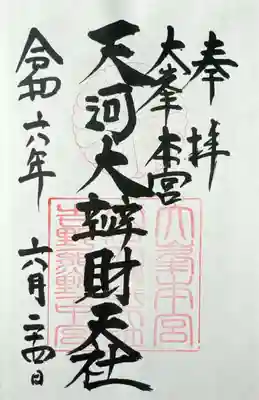 奉拝
大峯本宮
天河大辨財天社
令和六年
六月二十四日